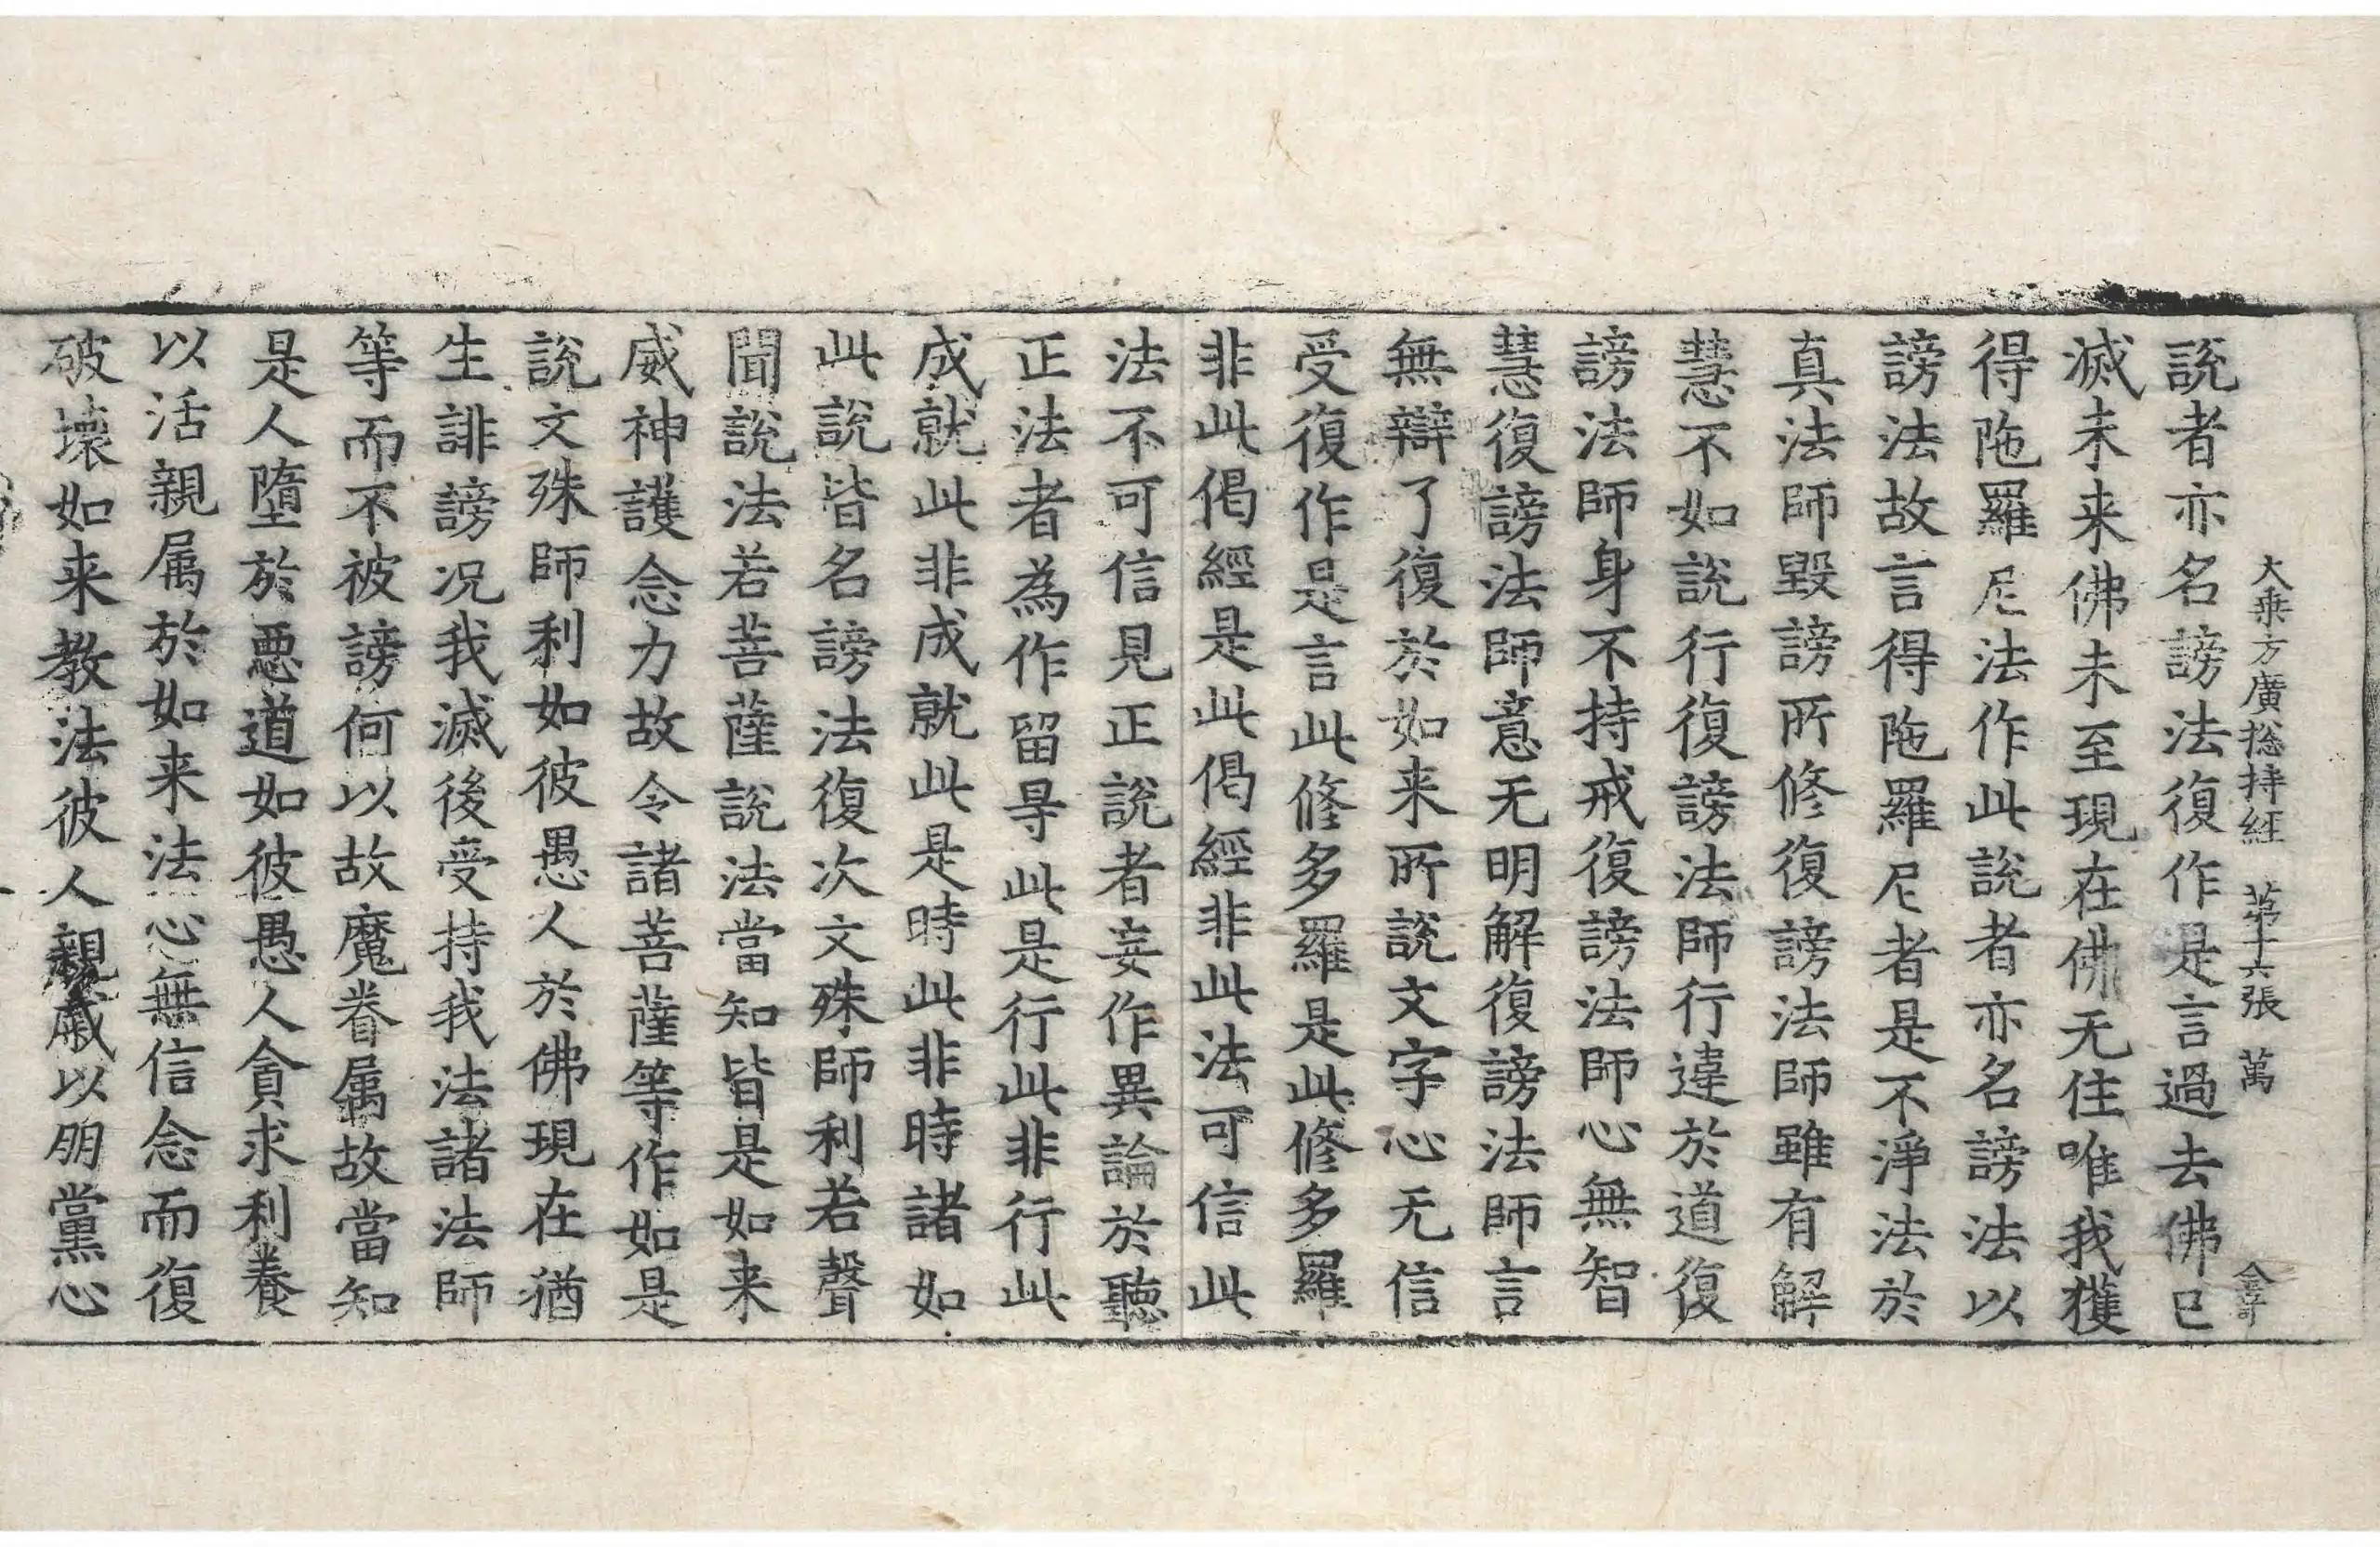 大乘方廣捴持経 苐十六張 萬
說者亦名謗法復作是言過去佛已
滅未来佛未至現在佛无住唯我獲
得陁羅尼法作此說者亦名謗法以
謗法故言得陁羅尼者是不淨法於
真法師毀謗所修復謗法師雖有解
慧不如說行復謗法師行違於道復
謗法師身不持戒復謗法師心無智
慧復謗法師意无明解復謗法師言
無辯了復於如来所說文字心无信
受復作是言此修多羅是此修多羅
非此偈經是此偈經非此法可信此
法不可信見正說者妄作異論於聽
正法者為作留㝵此是行此非行此
成就此非成就此是時此非時諸如
此說皆名謗法復次文殊師利若聲
聞說法若菩薩說法當知皆是如来
威神護念力故令諸菩薩等作如是
說文殊師利如彼愚人於佛現在猶
生誹謗况我滅後受持我法諸法師
等而不被謗何以故魔眷属故當知
是人墮於惡道如彼愚人貪求利養
以活親属於如来法心無信念而復
破壞如来教法彼人親戚以朋黨心